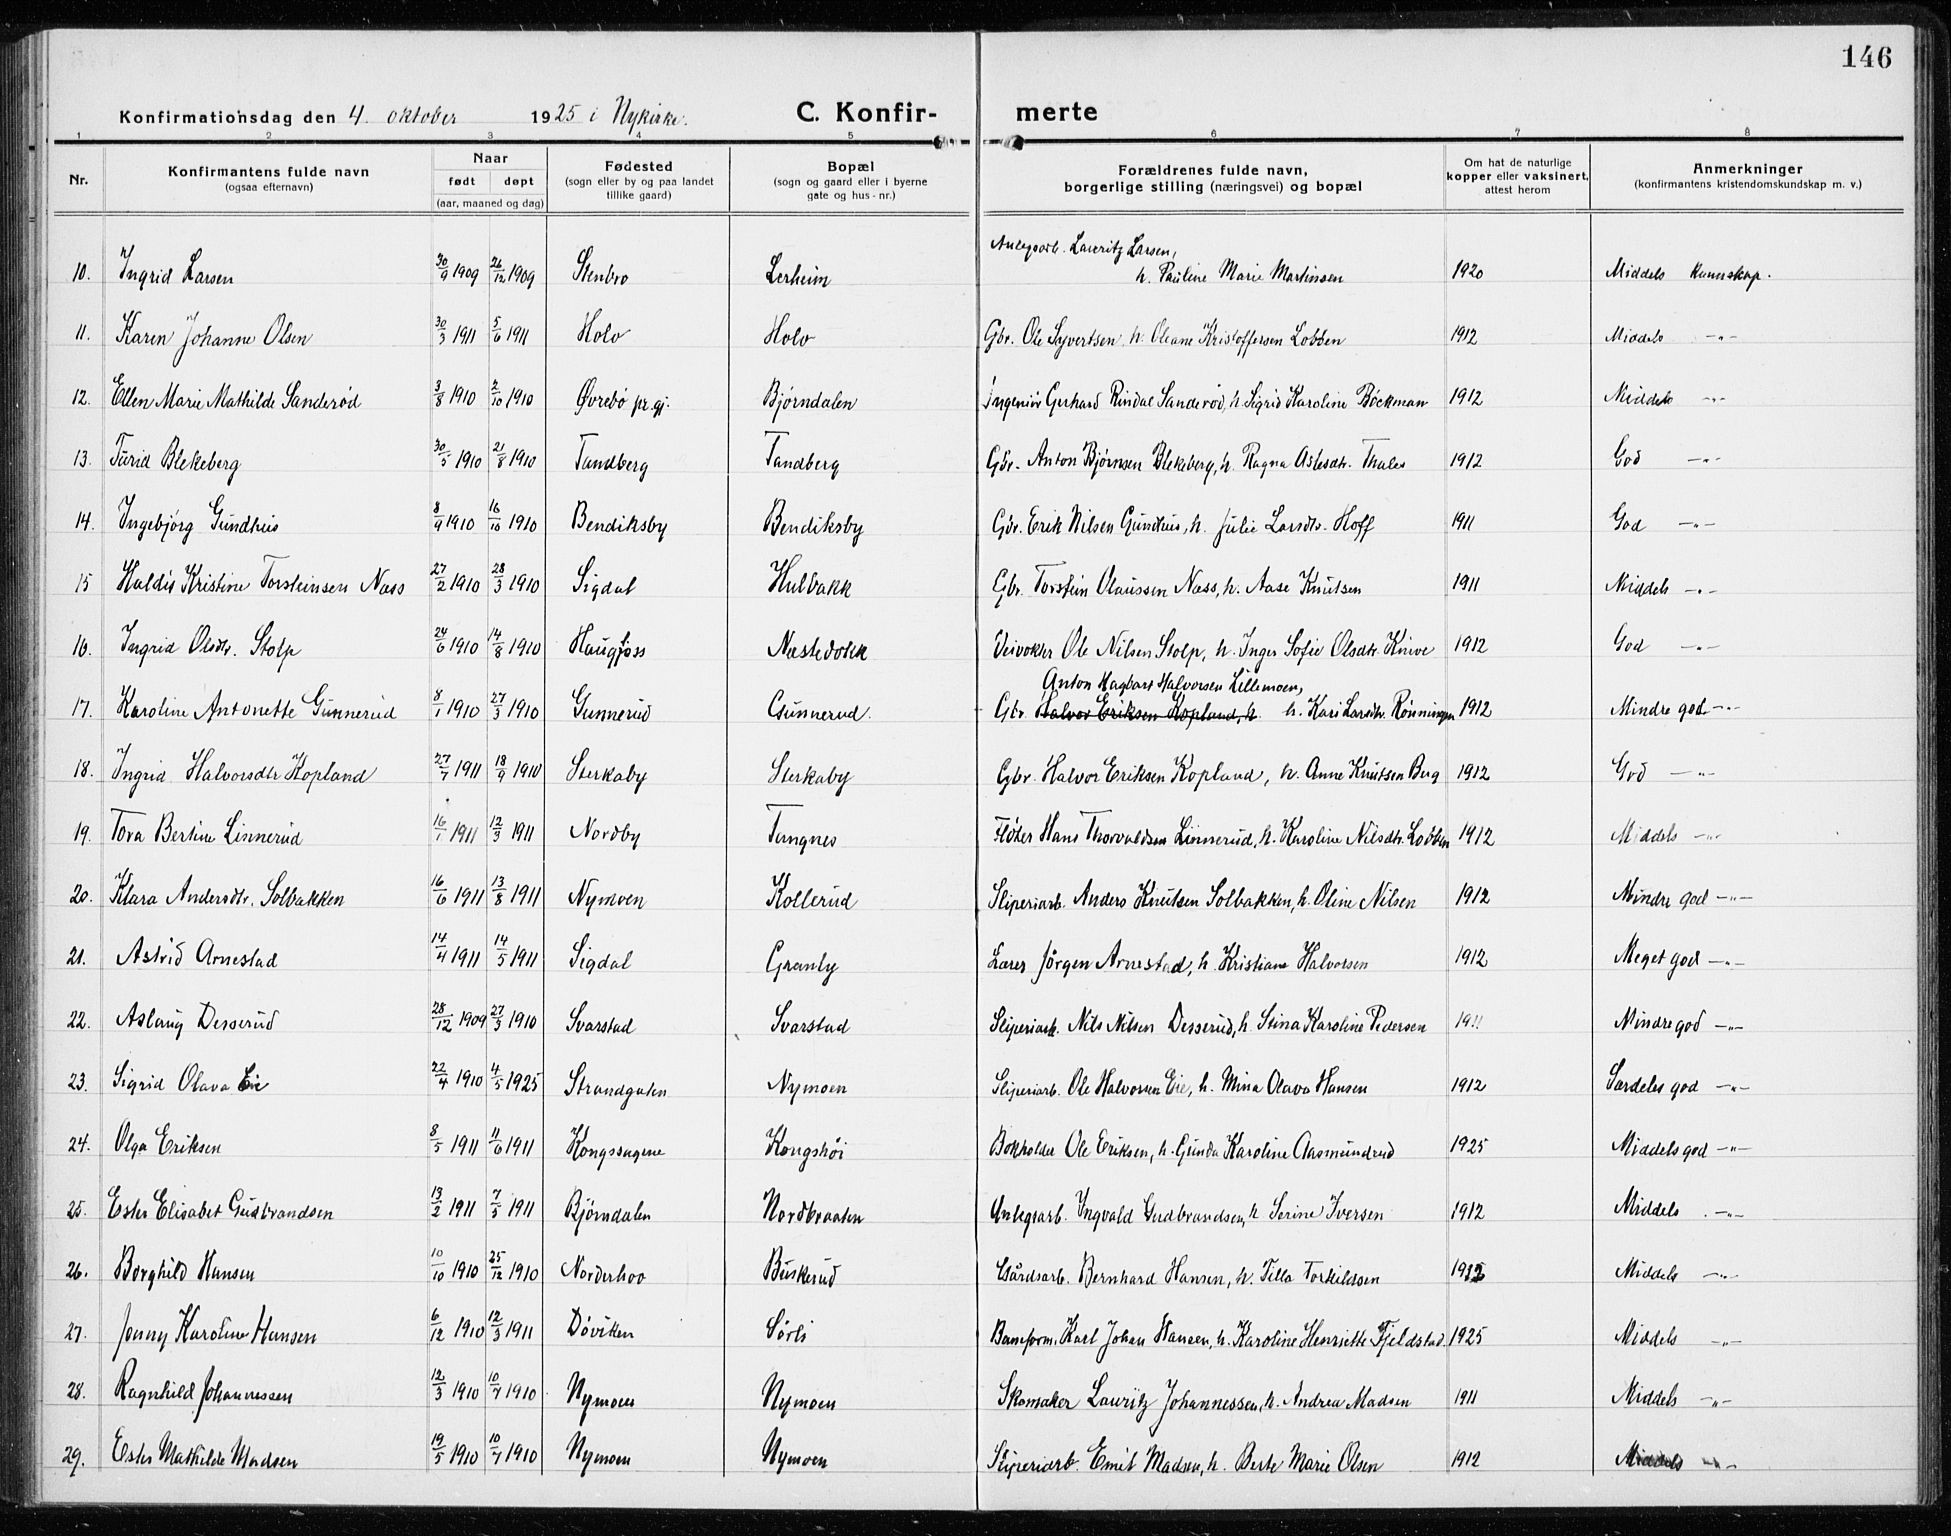 146
Konfirmationsdag den 4. oktober 1925 i Nykirke. C. Konfir- merte
1 2 3 4 5 6 7 8
Nr. Konfirmantens fulde navn (ogsaa efternavn) Naar født døpt (aar, maaned og dag) Fødested (sogn eller by og paa landet tillike gaard) Bopæl (sogn og gaard eller i byerne gate og hus-nr.) Forældrenes fulde navn, borgerlige stilling (næringsvei) og bopæl Om hat de naturlige kopper eller vaksinert, attest herom Anmerkninger (konfirmantens kristendomskundskap m. v.)
Anlegsarb. Lauritz Larsen,
10. Ingrid Larsen 30/9 1909 26/12 1909 Stenbro Lerheim h. Pauline Marie Martinsen 1920 Middels kunnskap.
11. Karen Johanne Olsen 30/3 1911 5/6 1911 Holo Holo Gbr. Ole Syvertsen, h. Oleane Kristoffersen Lobben 1912 Middels -"-
12. Ellen Marie Mathilde Sanderød 3/8 1910 2/10 1910 Øvrebö pr.gj. Bjørndalen Ingeniør Gerhard Rindal Sanderød, h. Sigrid Karoline Böckman 1912 Middels -"-
13. Turid Blekeberg 30/5 1910 21/8 1910 Tandberg Tandberg Gbr. Anton Bjørnsen Blekeberg, h. Ragna Aslesdtr. Thales 1912 God -"-
14. Ingebjörg Gundhus 8/9 1910 16/10 1910 Bendiksby Bendiksby Gbr. Erik Nilsen Gundhus, h. Julie Larsdtr. Hoff 1911 God -"-
15 Haldis Kristine Torsteinsen Næss 27/2 1910 28/3 1910 Sigdal Hulbakk Gbr. Torstein Olaussen Næss, h. Aase Knutsen 1911 Middels -"-
16. Ingrid Olsdtr. Stolp 24/6 1910 14/8 1910 Haugfoss Næstevold Veivokter Ole Nilsen Stolp, h. Inger Sofie Olsdtr. Knive 1912 God -"-
Anton Hagbart Halvorsen Lillemoen,
17. Karoline Antonette Gunnerud 8/1 1910 27/3 1910 Gunnerud Gunnerud. Gbr. Halvor Eriksen Kopland, h. h. Kari Larsdtr. Rönningen 1912 Mindre god -"-
18. Ingrid Halvorsdtr Kopland 27/7 1911 18/9 1910 Sterkaby Sterkaby Gbr. Halvor Eriksen Kopland, h. Anne Knutsen Berg 1912 God -"-
19. Tora Bertine Linnerud 16/1 1911 12/3 1911 Nordby Tangnes Fløter Hans Thorvaldsen Linnerud, h. Karoline Nilsdtr. Lobben 1912 Middels -"-
20. Klara Andersdtr. Solbakken 16/6 1911 13/8 1911 Nymoen Kollerud Sliperiarb. Anders Knutsen Solbakken, h. Oline Nilsen 1912 Mindre god -"-
21. Astrid Arnestad 14/4 1911 14/5 1911 Sigdal Granly Lærer Jörgen Arnestad, h. Kristiane Halvorsen 1912 Meget god -"-
22. Aslaug Desserud 28/12 1909 27/3 1910 Svarstad Svarstad Sliperiarb. Nils Nilsen Desserud, h. Stina Karoline Pedersen 1911 Mindre god -"-
23. Sigrid Olava Eie 22/4 1910 4/5 1925 Strandgaten Nymoen Sliperiarb. Ole Halvorsen Eie, h. Mina Olava Hansen 1912 Særdeles god -"-
24. Olga Eriksen 8/5 1911 11/6 1911 Kongssagene Kongshöi Bokholder Ole Eriksen, h. Gunda Karoline Aasmundrud 1925 Middels god -"-
25. Ester Elisabet Gudbrandsen 13/2 1911 7/5 1911 Bjørndalen Nordbraaten Anlegsarb. Ingvald Gudbrandsen, h Serine Iversen 1912 Middels -"-
26. Borghild Hansen 10/10 1910 25/12 1910 Norderhov Buskerud Gårdsarb. Bernhard Hansen, h. Tilla Torkildsen 1912 Middels -"-
27. Jenny Karoline Hansen 6/12 1910 12/3 1911 Döviken Sörli Baneform. Karl Johan Hansen, h. Karoline Henriette Fjeldstad. 1925 Middels -"-
28. Ragnhild Johannessen 12/3 1910 10/7 1910 Nymoen Nymoen Skomaker Lauritz Johannessen, h. Andrea Madsen 1911 Middels -"-
29. Ester Mathilde Madsen 19/5 1910 10/7 1910 Nymoen Nymoen Sliperiarb. Emil Madsen, h. Berte Marie Olsen 1912 Middels -"-